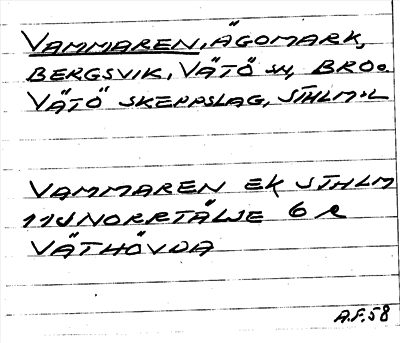 VAMMAREN, ÄGOMARK,
BERGSVIK, VÄTÖ SN, BRO o.
VÄTÖ SKEPPSLAG, STHLM.L
VAMMAREN EK STHLM
11J NORRTÄLJE 6 R
VÄTHÖVDA
A.F. 58